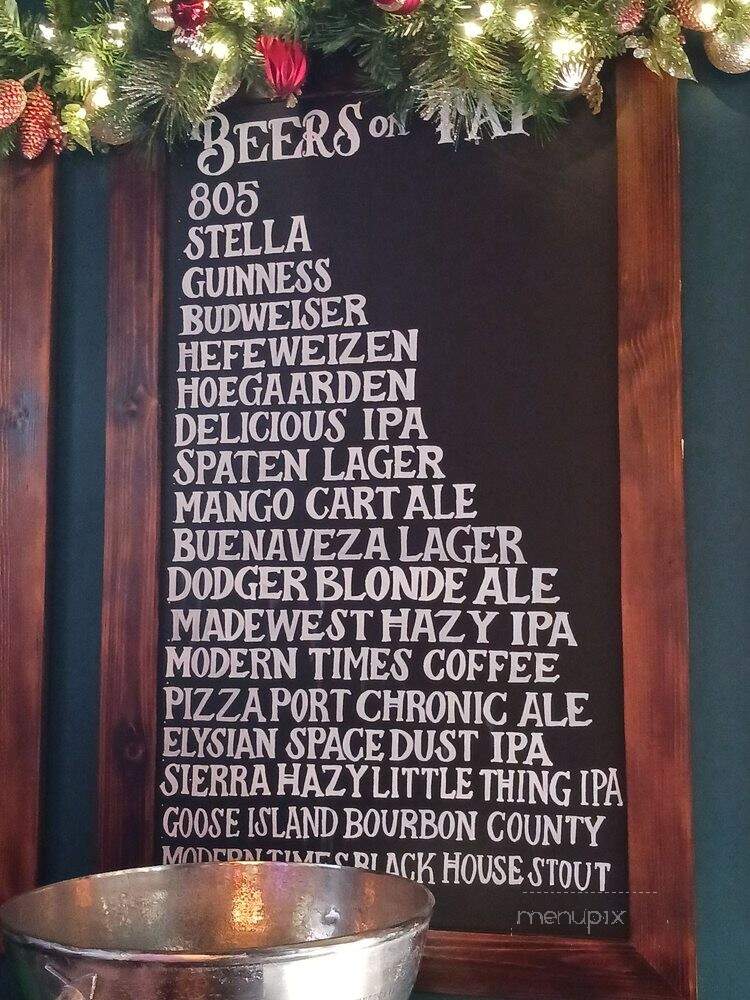 BEERS ON TAP
805
STELLA
GUINNESS
BUDWEISER
HEFEWEIZEN
HOEGAARDEN
DELICIOUS IPA
SPATEN LAGER
MANGO CART ALE
BUENAVEZA LAGER
DODGER BLONDE ALE
MADEWEST HAZY IPA
MODERN TIMES COFFEE
PIZZA PORT CHRONIC ALE
ELYSIAN SPACE DUST IPA
SIERRA HAZY LITTLE THING IPA
GOOSE ISLAND BOURBON COUNTY
MODERN TIMES BLACK HOUSE STOUT
menupix